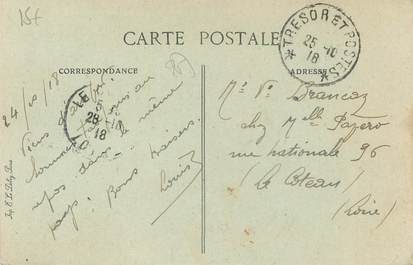 15f
CARTE POSTALE
CORRESPONDANCE
ADRESSE
TRESOR ET POSTES
25-10
18
28-10
18
24/10/18
hommes
au
repos dans le même
pays. Bons baisers.
Louis
Mme Ve Brancaz
chez Melle
rue nationale 96
Le Coteau
(Loire)